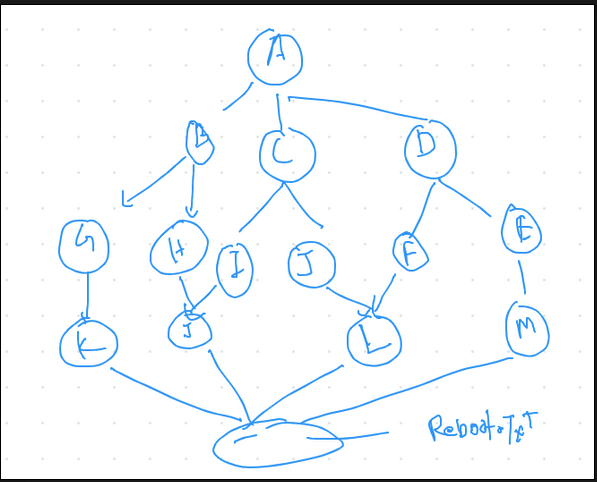 A
B
C
D
G
H
I
J
F
E
K
J
L
M
Reboot.TxT